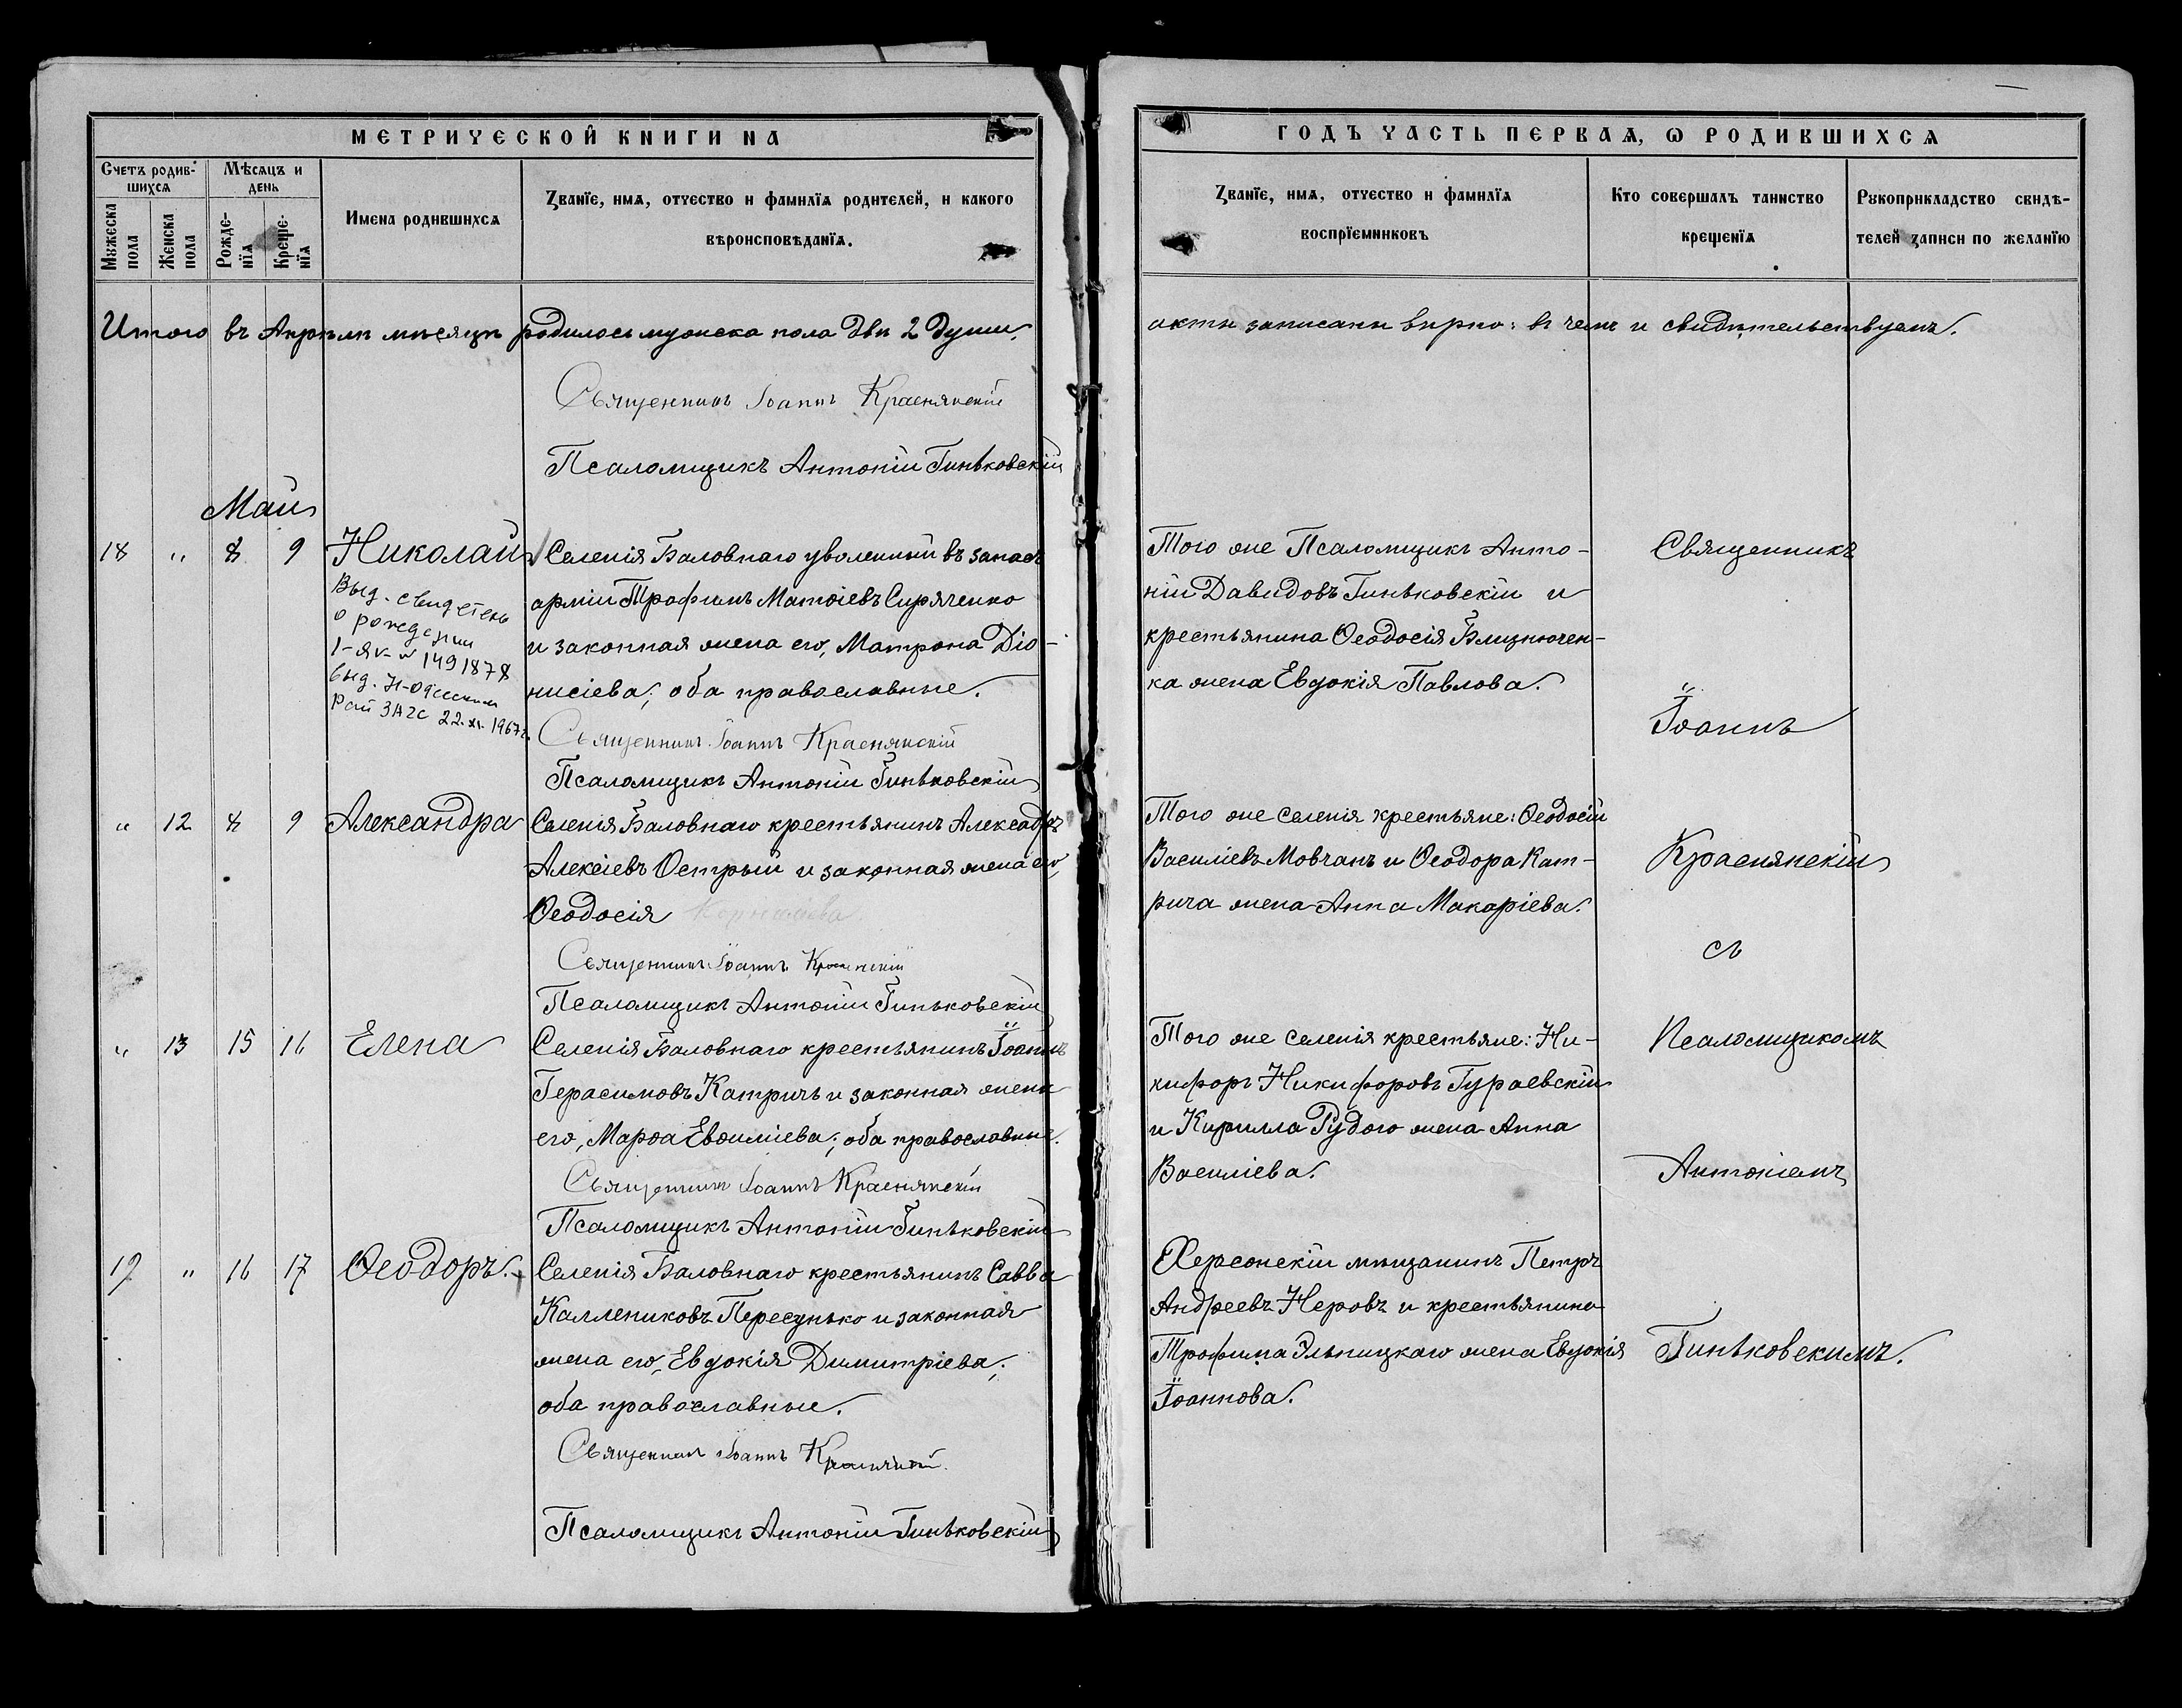 МЕТРИЧЕСКОЙ КНИГИ НА
Счетъ родив-
шихся
Мѣсяцъ и
день
Мужеска
пола
Женска
пола
Рожде-
нїя
Креще-
нїя
Имена родившихся
Званїе, имя, отчество и фамилїя родителей, и какого
вѣроисповѣданїя.
Итого въ Апрѣлѣ мѣсяцѣ родилось мужеска пола двѣ 2 души.
Священникъ Іоаннъ Краснянскій
Псаломщикъ Антоній Гиньковскій
Май
18 " 8 9 Николай Селенія Баловнаго уволенный въ запасъ
арміи Трофимъ Матѳіевъ Сиряченко
и законная жена его, Матрона Діо-
нисіева; оба православные.
Выд. свидетель
о рождении
1-ЯК № 1491878
выд. Н-Одесским
Рай ЗАГС 22.XI.1967г.
Священникъ Іоаннъ Краснянскій
Псаломщикъ Антоній Гиньковскій
" 12 8 9 Александра Селенія Баловнаго крестьянинъ Александръ
Алексіевъ Острый и законная жена его,
Ѳеодосія
Священникъ Іоаннъ Краснянскій
Псаломщикъ Антоній Гиньковскій
" 13 15 16 Елена Селенія Баловнаго крестьянинъ Іоаннъ
Герасимовъ Катричъ и законная жена
его, Марѳа Евѳиміева; оба православные.
Священникъ Іоаннъ Краснянскій
Псаломщикъ Антоній Гиньковскій
19 " 16 17 Ѳеодоръ. Селенія Баловнаго крестьянинъ Савва
Каллениковъ Пересунько и законная
жена его, Евдокія Димитріева;
оба православные.
Священникъ Іоаннъ Краснянскій
Псаломщикъ Антоній Гиньковскій
ГОДЪ ЧАСТЬ ПЕРВАЯ, Ѡ РОДИВШИХСЯ
Званїе, имя, отчество и фамилїя
воспрїемниковъ
Кто совершалъ таинство
крещенїя
Рукоприкладство свидѣ-
телей записи по желанїю
акты записаны вѣрно: въ чемъ и свидѣтельствуемъ.
Того же Псаломщикъ Анто-
ній Давидовъ Гиньковскій и
крестьянина Ѳеодосія Близнючен-
ка жена Евдокія Павлова.
Того же селенія крестьяне: Ѳеодосій
Василіевъ Мовчанъ и Ѳеодора Кат-
рича жена Анна Макаріева.
Того же селенія крестьяне: Ни-
кифоръ Никифоровъ Гураевскій
и Кирилла Рудого жена Анна
Василіева.
Херсонскій мѣщанинъ Петръ
Андреевъ Неровъ и крестьянина
Трофима Ильницкаго жена Евдокія
Іоаннова.
Священникъ
Іоаннъ
Краснянскій
съ
Псаломщикомъ
Антоніемъ
Гиньковскимъ.